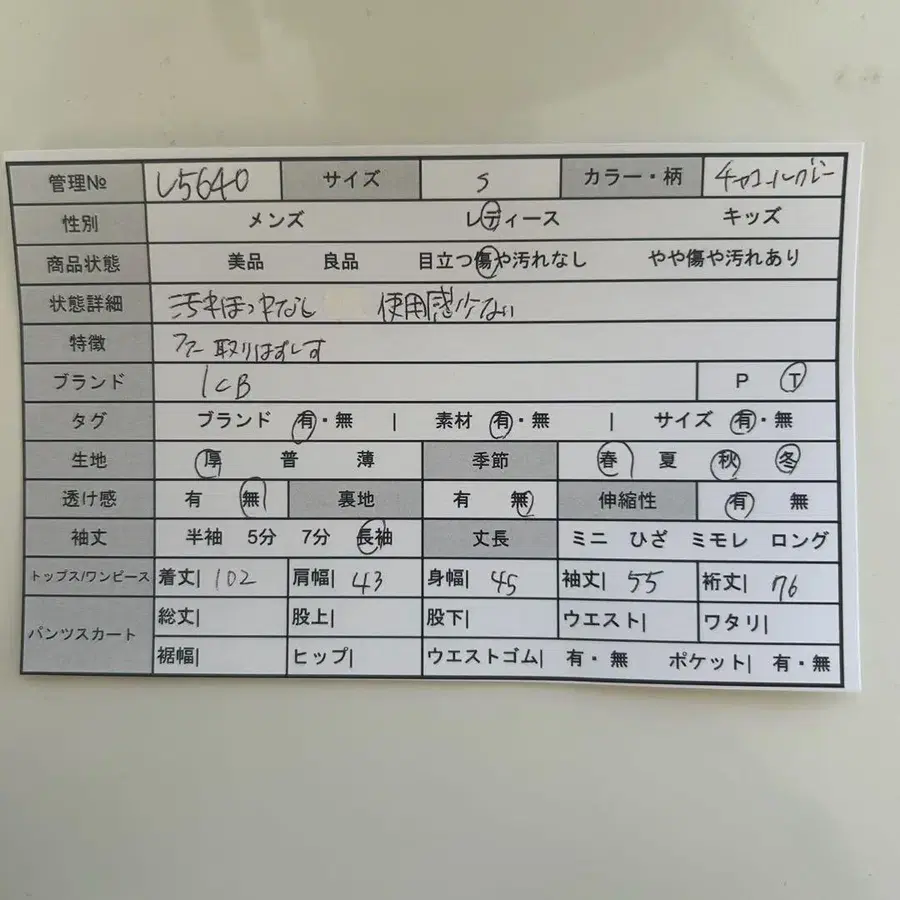 管理№ L5640 サイズ S カラー・柄 チャコールグレー
性別 メンズ レディース キッズ
商品状態 美品 良品 目立つ傷や汚れなし やや傷や汚れあり
状態詳細 汚れほつれなし 使用感少ない
特徴 ファー取りはずしす
ブランド ICB P T
タグ ブランド 有・無 | 素材 有・無 | サイズ 有・無
生地 厚 普 薄 季節 春 夏 秋 冬
透け感 有 無 裏地 有 無 伸縮性 有 無
袖丈 半袖 5分 7分 長袖 丈長 ミニ ひざ ミモレ ロング
トップス/ワンピース 着丈| 102 肩幅| 43 身幅| 45 袖丈| 55 裄丈| 76
パンツスカート 総丈| 股上| 股下| ウエスト| ワタリ|
裾幅| ヒップ| ウエストゴム| 有・無 ポケット| 有・無